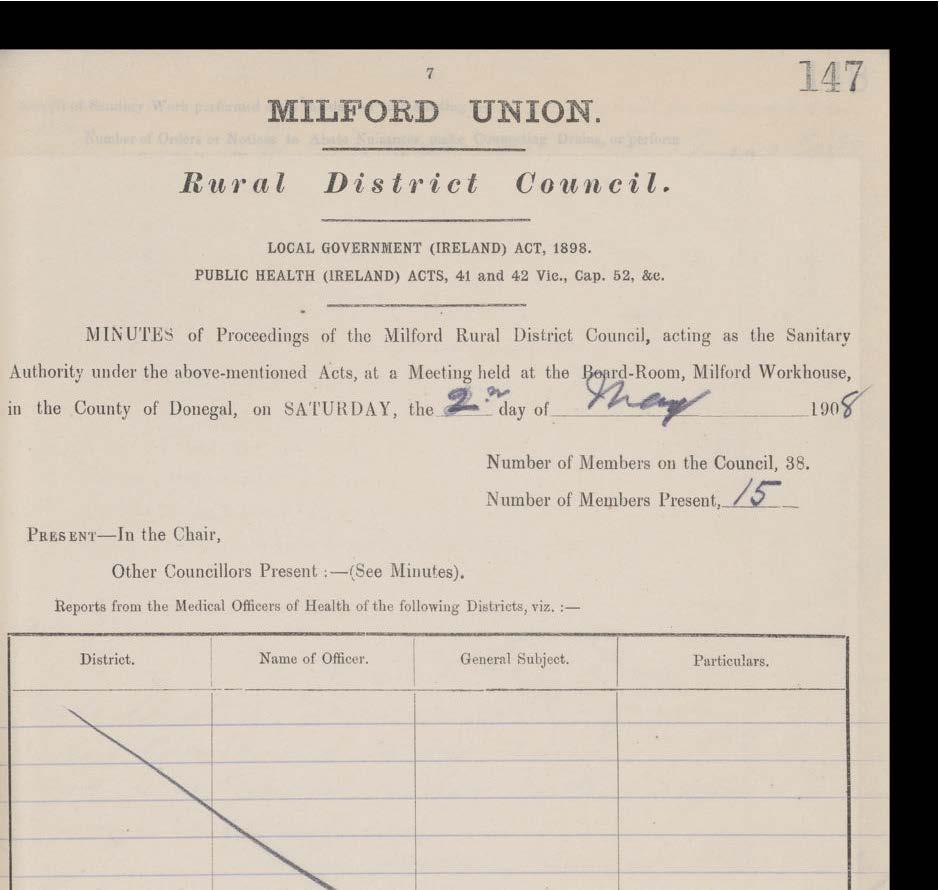 147
7
MILFORD UNION.
Number of Orders or Notices to Abate Nuisances, make Connecting Drains, or perform
Rural District Council.
LOCAL GOVERNMENT (IRELAND) ACT, 1898.
PUBLIC HEALTH (IRELAND) ACTS, 41 and 42 Vic., Cap. 52, &c.
MINUTES of Proceedings of the Milford Rural District Council, acting as the Sanitary
Authority under the above-mentioned Acts, at a Meeting held at the Board-Room, Milford Workhouse,
in the County of Donegal, on SATURDAY, the 2nd day of May 1908
Number of Members on the Council, 38.
Number of Members Present, 15
PRESENT—In the Chair,
Other Councillors Present :—(See Minutes).
Reports from the Medical Officers of Health of the following Districts, viz. :—
District. Name of Officer. General Subject. Particulars.